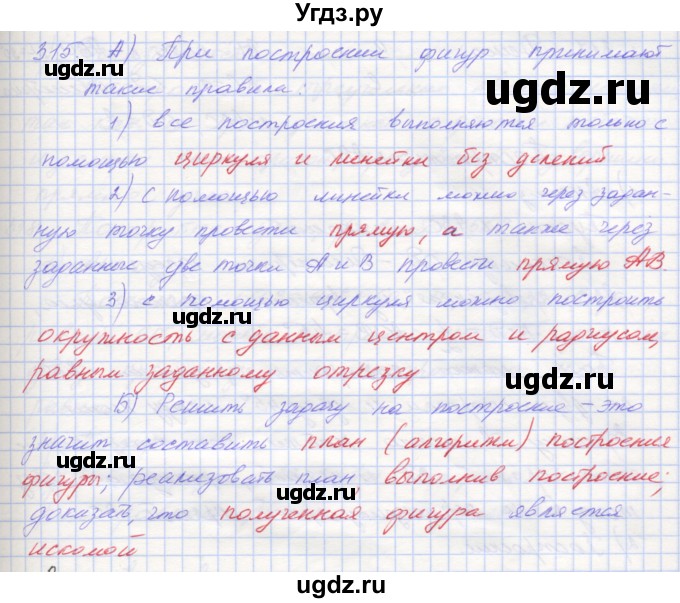 Угдз.ру
315 А) При построении фигур принимают
такие правила:
1) все построения выполняются только с
помощью циркуля и линейки без делений
2) С помощью линейки можно через задан-
ную точку провести прямую, а также через
заданные две точки А и В провести прямую АВ.
3) с помощью циркуля можно построить
окружность с данным центром и радиусом,
равным заданному отрезку
Б) Решить задачу на построение – это
значит составить план (алгоритм) построения
фигуры; реализовать план, выполнив построение;
доказать, что полученная фигура является
искомой
ugdz.ru
ugdz.ru
ugdz.ru
ugdz.ru
ugdz.ru
ugdz.ru
ugdz.ru
ugdz.ru